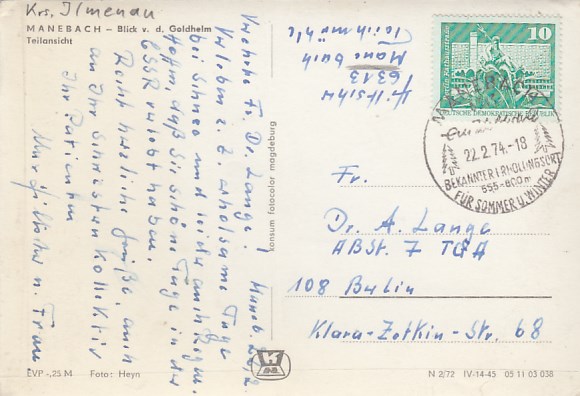 Krs. Ilmenau
MANEBACH – Blick v. d. Goldhelm
Teilansicht
Maneb. 22.2.
Verehrte Fr. Dr. Lange!
Verleben z. Z. erholsame Tage
bei Schnee und leider auch Regen.
Hoffen daß Sie schöne Tage in der
ČSSR verlebt haben.
Recht herzliche Grüße, auch
an Ihr Schwestern Kollektiv
Ihr Patienten
u. Frau
6313
Manebach
Teichmühle
konsum fotocolor magdeburg
10
Berlin, Rathausstraße
DEUTSCHE DEMOKRATISCHE REPUBLIK
MANEBACH
22.2.74.-18
BEKANNTER ERHOLUNGSORT
555-800m
FÜR SOMMER U. WINTER
Fr.
Dr. A. Lange
ABSt. 7
108 Berlin
Klara-Zetkin-Str. 68
EVP -,25 M Foto: Heyn
K
N 2/72 IV-14-45 05 11 03 038